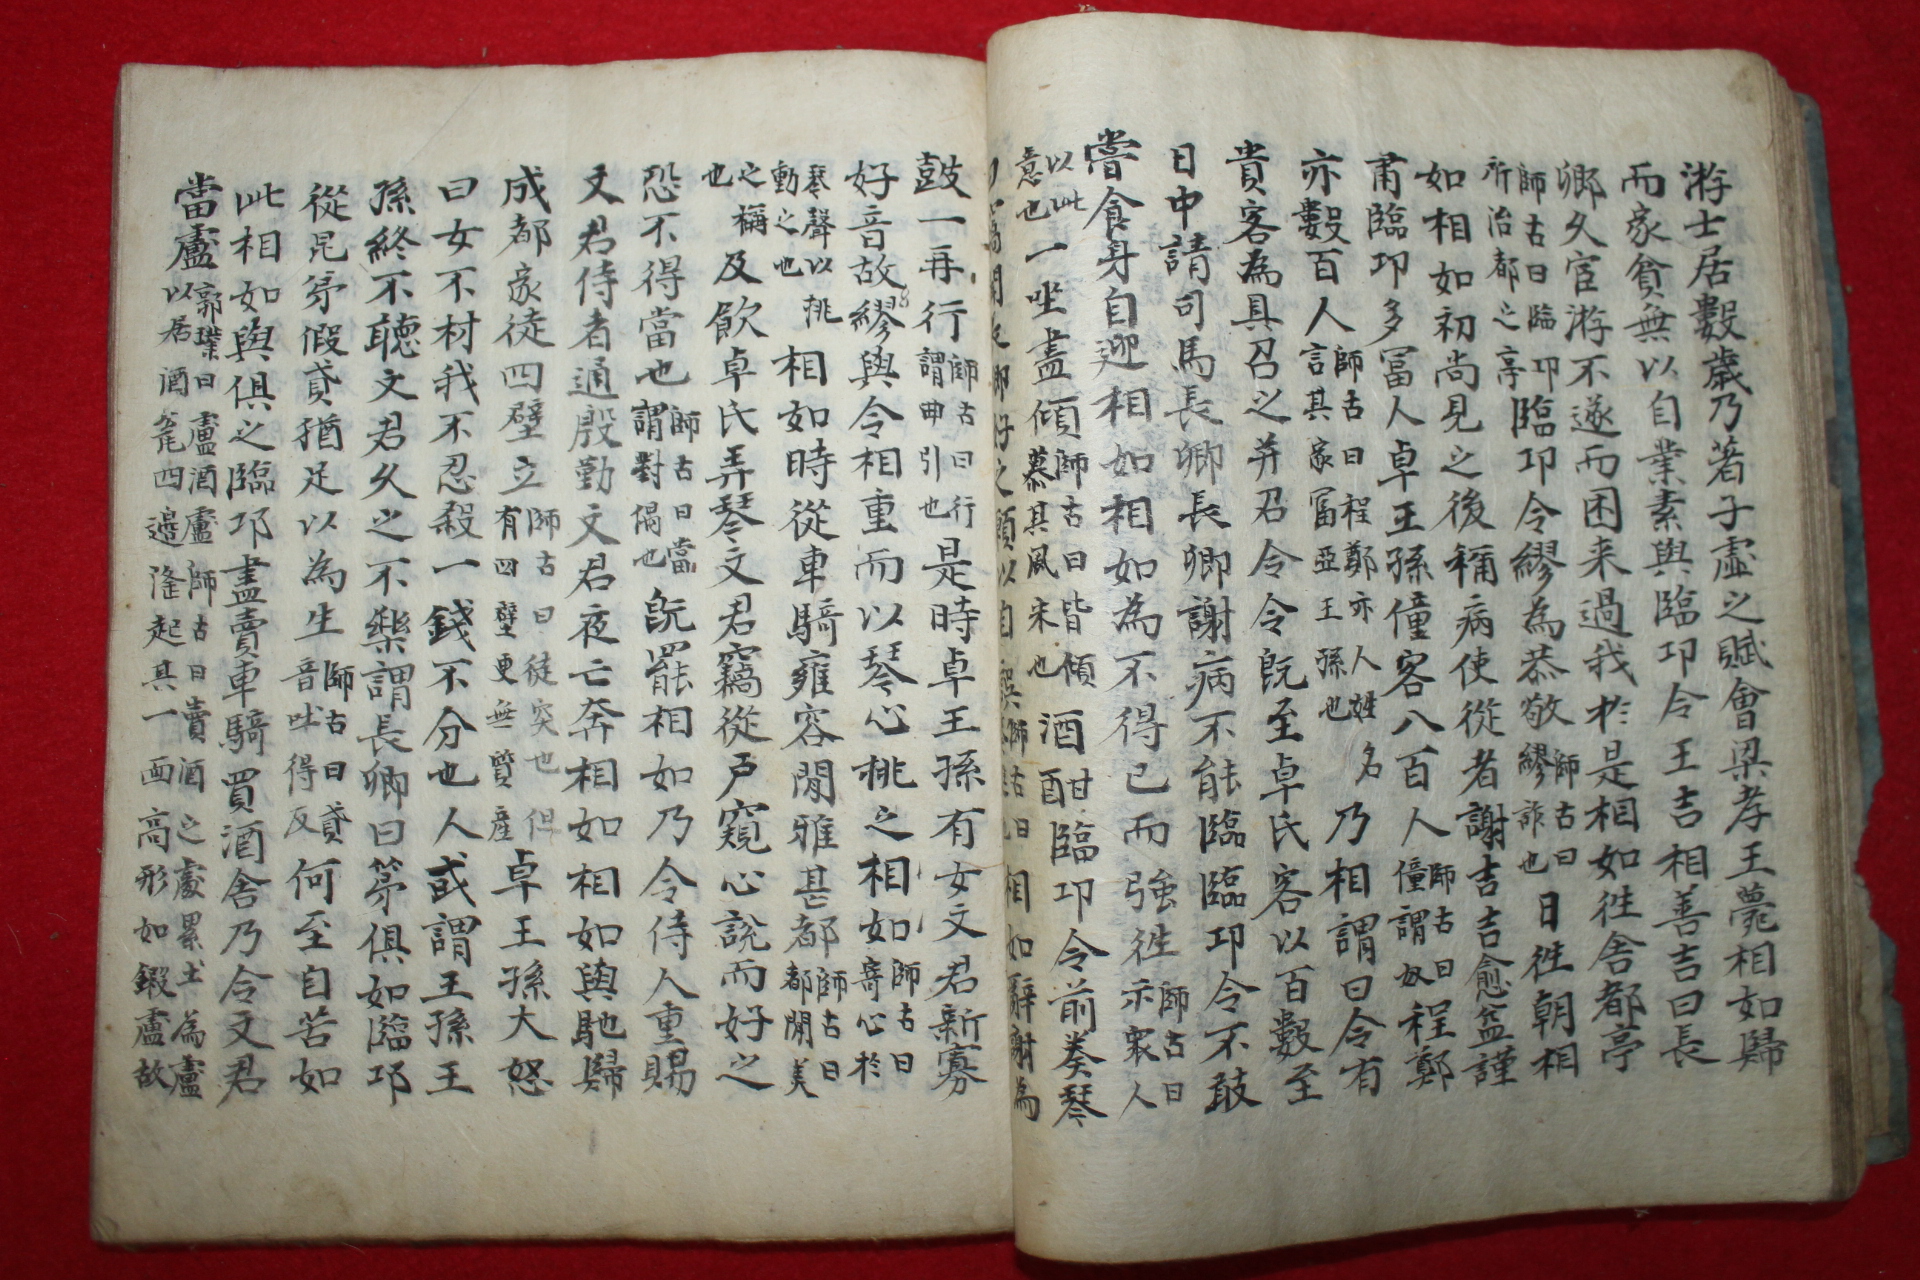 游士居數歲乃著子虛之賦會梁孝王薨相如歸
而家貧無以自業素與臨邛令王吉相善吉曰長
卿久宦游不遂而困来過我於是相如往舍都亭
師古曰臨邛所治都之亭臨邛令繆為恭敬師古曰繆詐也日往朝相
如相如初尚見之後稱病使從者謝吉吉愈益謹
甫臨邛多冨人卓王孫僮客八百人師古曰僮謂奴程鄭
亦數百人師古曰程鄭亦人姓名言其家冨亞王孫也乃相謂曰令有
貴客為具召之并召令令既至卓氏客以百數至
日中請司馬長卿長卿謝病不能臨臨邛令不敢
嘗食身自迎相如相如為不得已而強往師古曰示衆人
以此意也一坐盡傾師古曰皆傾慕其風宋也酒酣臨邛令前奏琴
聞長卿好之願以自娱師古曰相如辭謝為
鼓一再行師古曰行謂曲引也是時卓王孫有女文君新寡
好音故繆與令相重而以琴心挑之相如師古曰寄心於
琴聲以挑動之也相如時從車騎雍容閒雅甚都師古曰都閒美
之稱也及飲卓氏弄琴文君竊從戶窺心說而好之
恐不得當也師古曰當謂對偶也既罷相如乃令侍人重賜
文君侍者通殷勤文君夜亡奔相如相如與馳歸
成都家徒四壁立師古曰徒突也但有四壁更無質產卓王孫大怒
曰女不材我不忍殺一錢不分也人或謂王孫王
孫終不聽文君久之不樂謂長卿曰弟俱如臨邛
從昆弟假貸猶足以為生師古曰貸音吐得反何至自苦如
此相如與俱之臨邛盡賣車騎買酒舍乃令文君
當盧郭璞曰盧酒盧師古曰賣酒之處累土為盧以居酒瓮四邊隆起其一面高形如鍜盧故